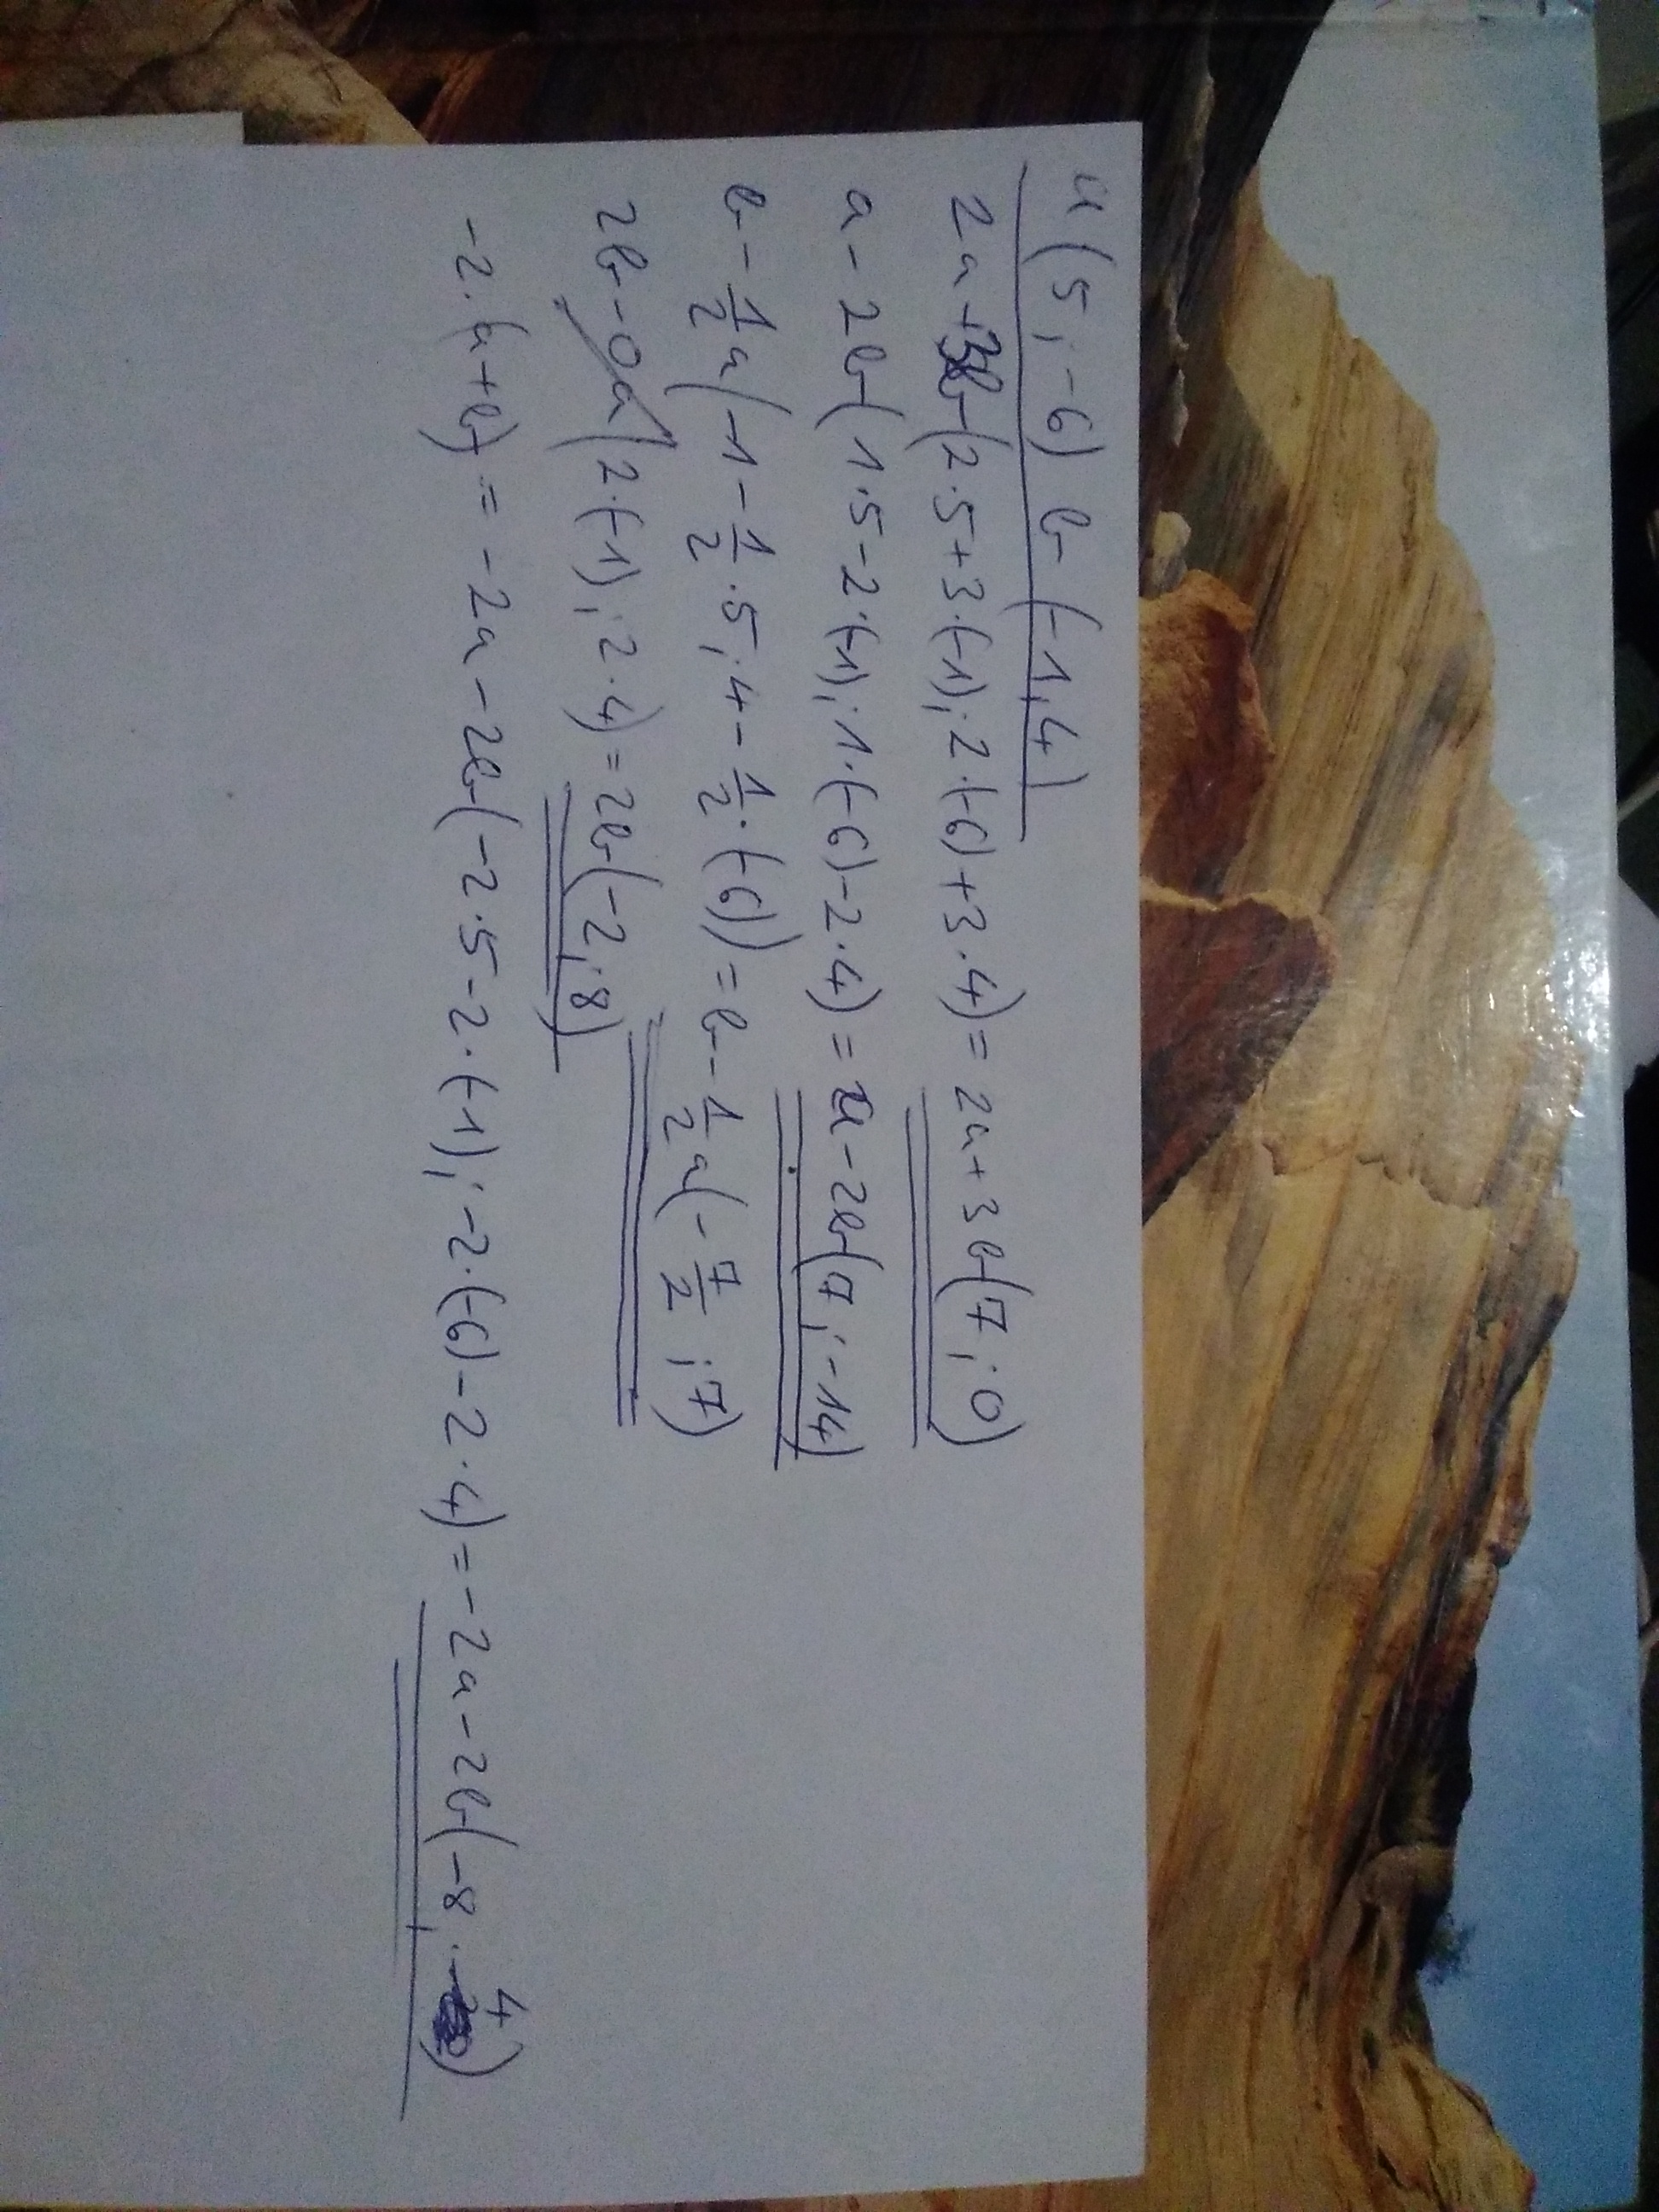 a(5;-6) b(-1,4)
2a+3b(2·5+3·(-1);2·(-6)+3·4)=2a+3b(7;0)
a-2b(1·5-2·(-1);1·(-6)-2·4)=a-2b(7;-14)
b-1/2a(-1-1/2·5;4-1/2·(-6))=b-1/2a(-7/2;7)
2b-0a(2·(-1);2·4)=2b(-2;8)
-2·(a+b)=-2a-2b(-2·5-2·(-1);-2·(-6)-2·4)=-2a-2b(-8;4)